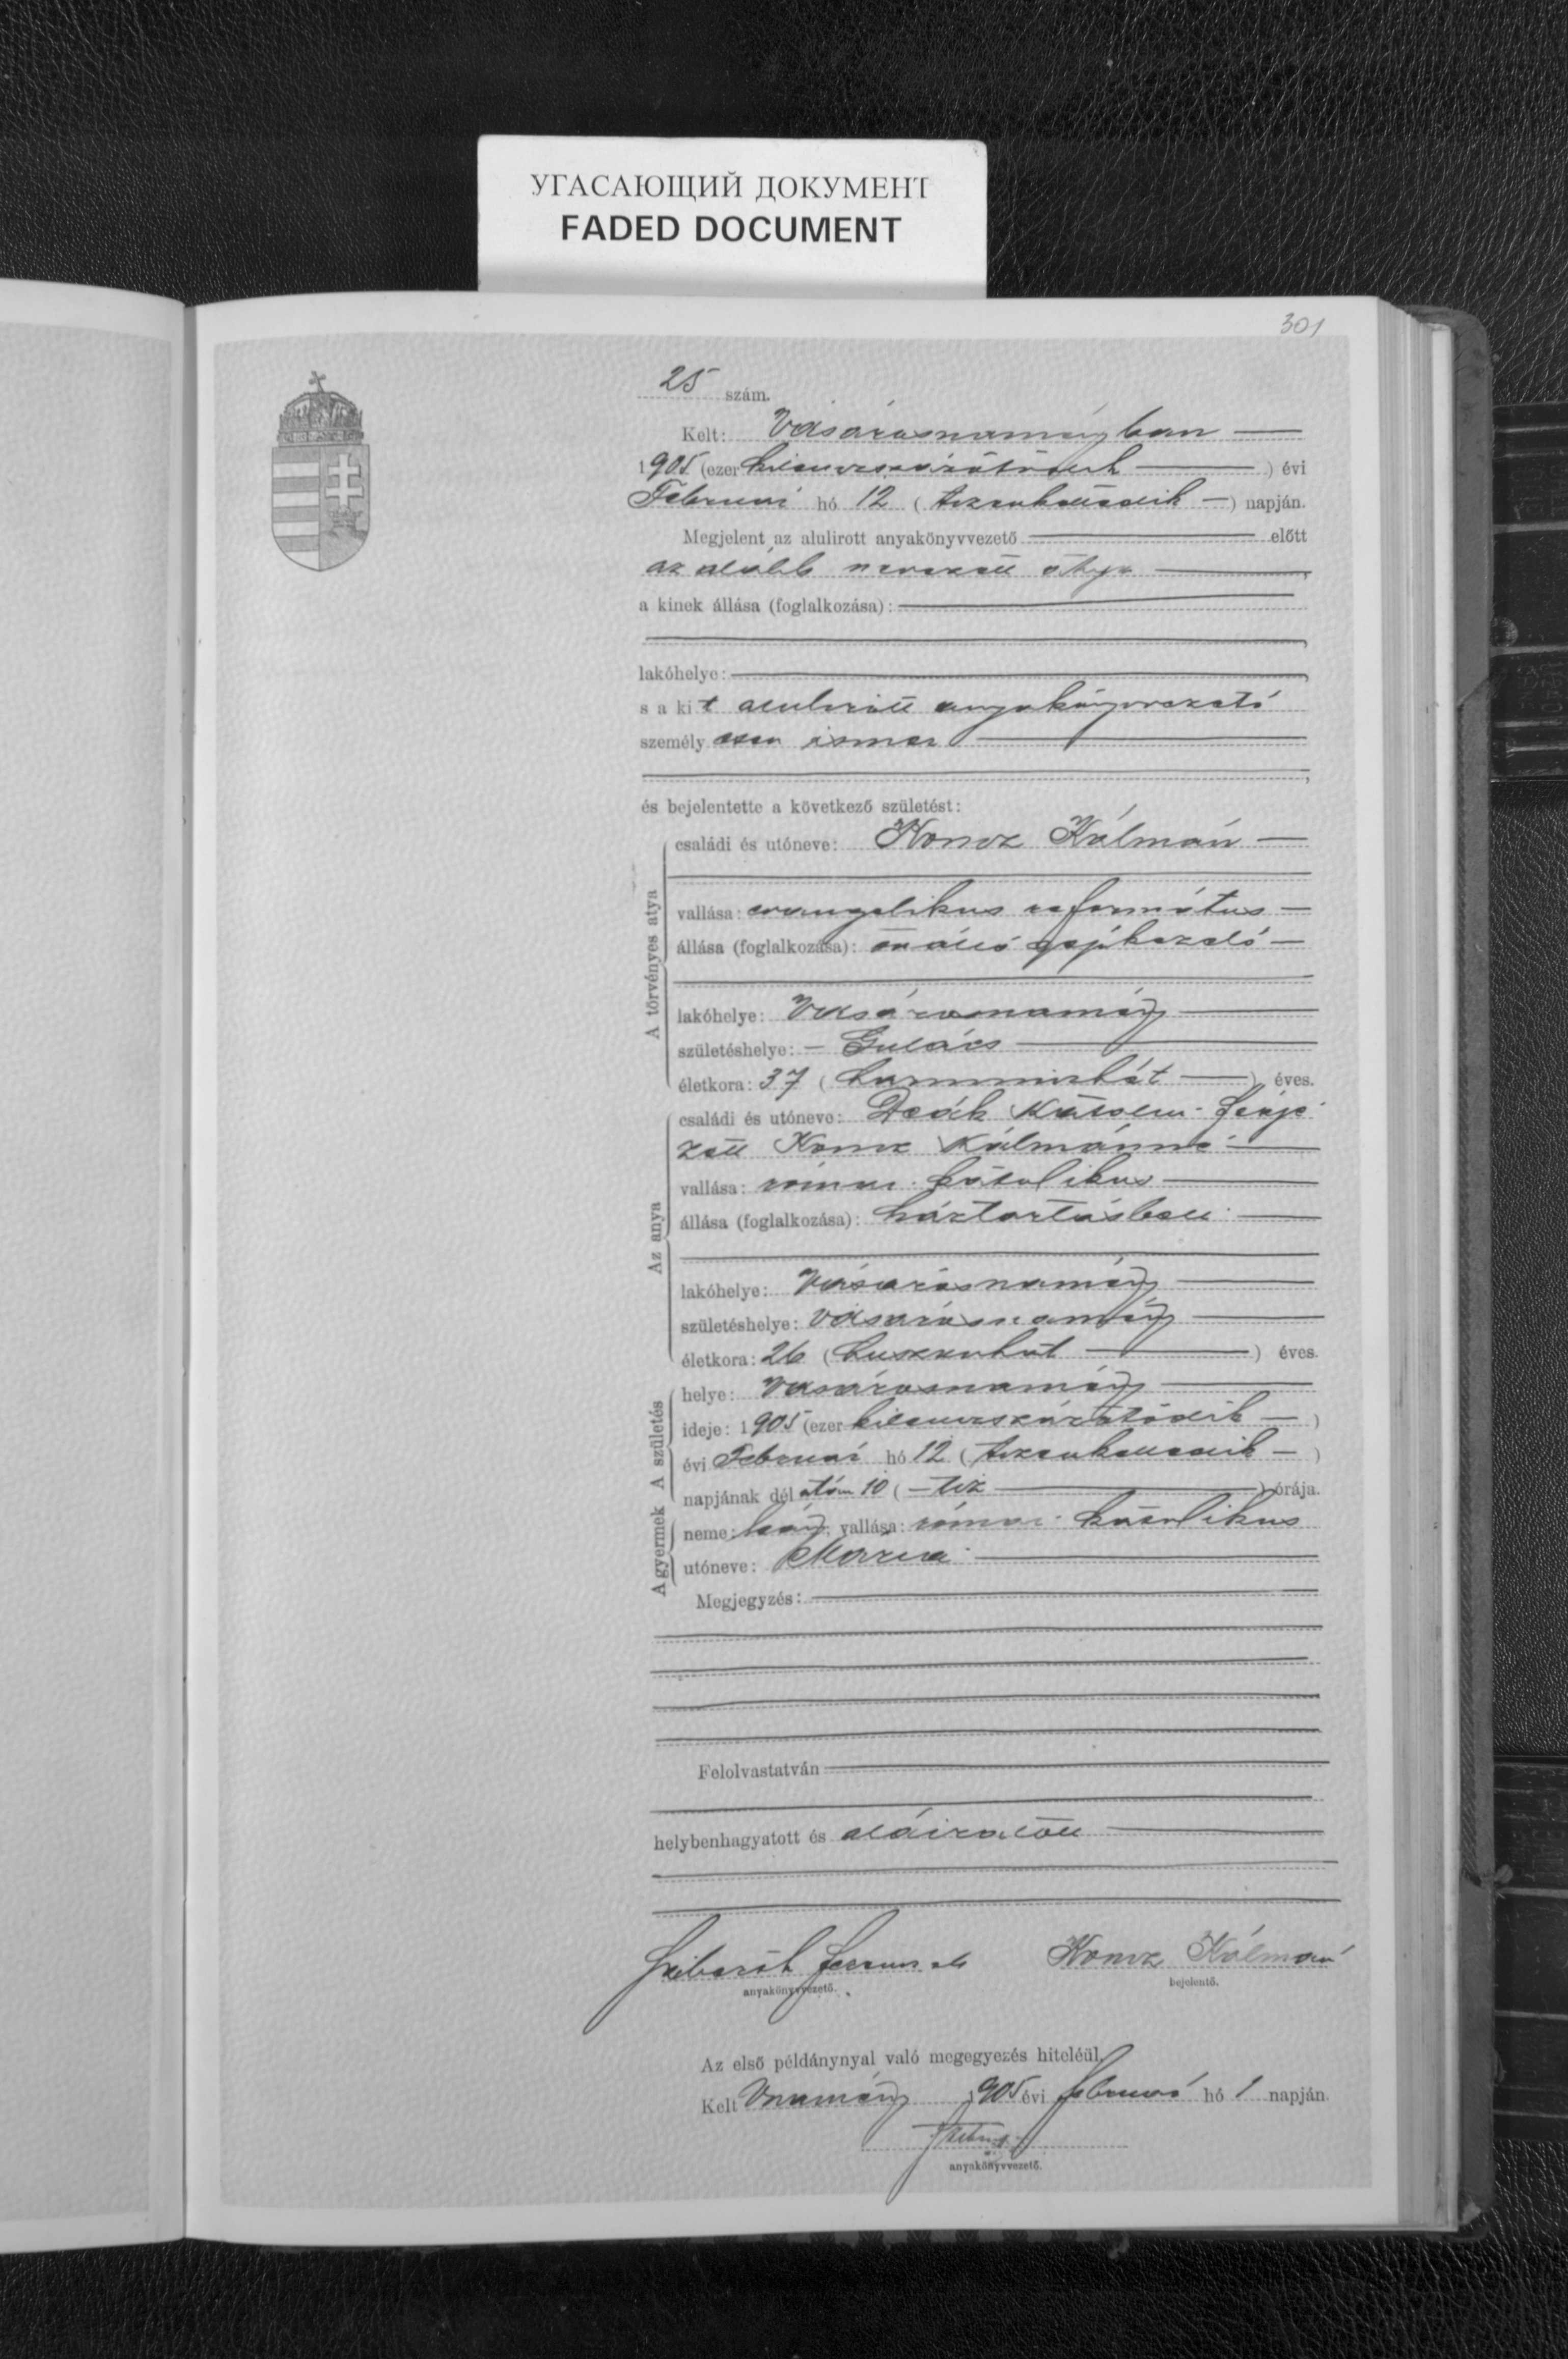 УГАСАЮЩИЙ ДОКУМЕНТ
FADED DOCUMENT
301
25 szám.
Kelt: Vásárosnaményban
1905 (ezer kilenczszázötödik) évi
Februári hó 12 (tizenkettedik) napján.
Megjelent az alulirott anyakönyvvezető előtt
az alább nevezett atya,
a kinek állása (foglalkozása):
lakóhelye:
s a kit alulirott anyakönyvvezető
személyesen ismer
és bejelentette a következő születést:
A törvényes atya
családi és utóneve: Koncz Kálmán
vallása: evangelikus református
állása (foglalkozása): önálló
lakóhelye: Vásárosnamény
születéshelye: Gulács
életkora: 37 (harminczhét) éves.
Az anya
családi és utóneve: Deák férje-
zett Koncz Kálmánné
vallása: római katolikus
állása (foglalkozása): háztartásbeli
lakóhelye: Vásárosnamény
születéshelye: Vásárosnamény
életkora: 26 (huszonhat) éves.
A gyermek A születés
helye: Vásárosnamény
ideje: 1905 (ezer kilenczszázötödik)
évi Februári hó 12 (tizenkettedik)
napjának délutáni 10 (tiz) órája.
neme: leány, vallása: római katolikus
utóneve: Mária
Megjegyzés:
Felolvastatván
helybenhagyatott és aláiratott
Koncz Kálmán
anyakönyvvezető. bejelentő.
Az első példánynyal való megegyezés hiteléül.
Kelt Vnamény 1905 évi februári hó 1 napján.
anyakönyvvezető.